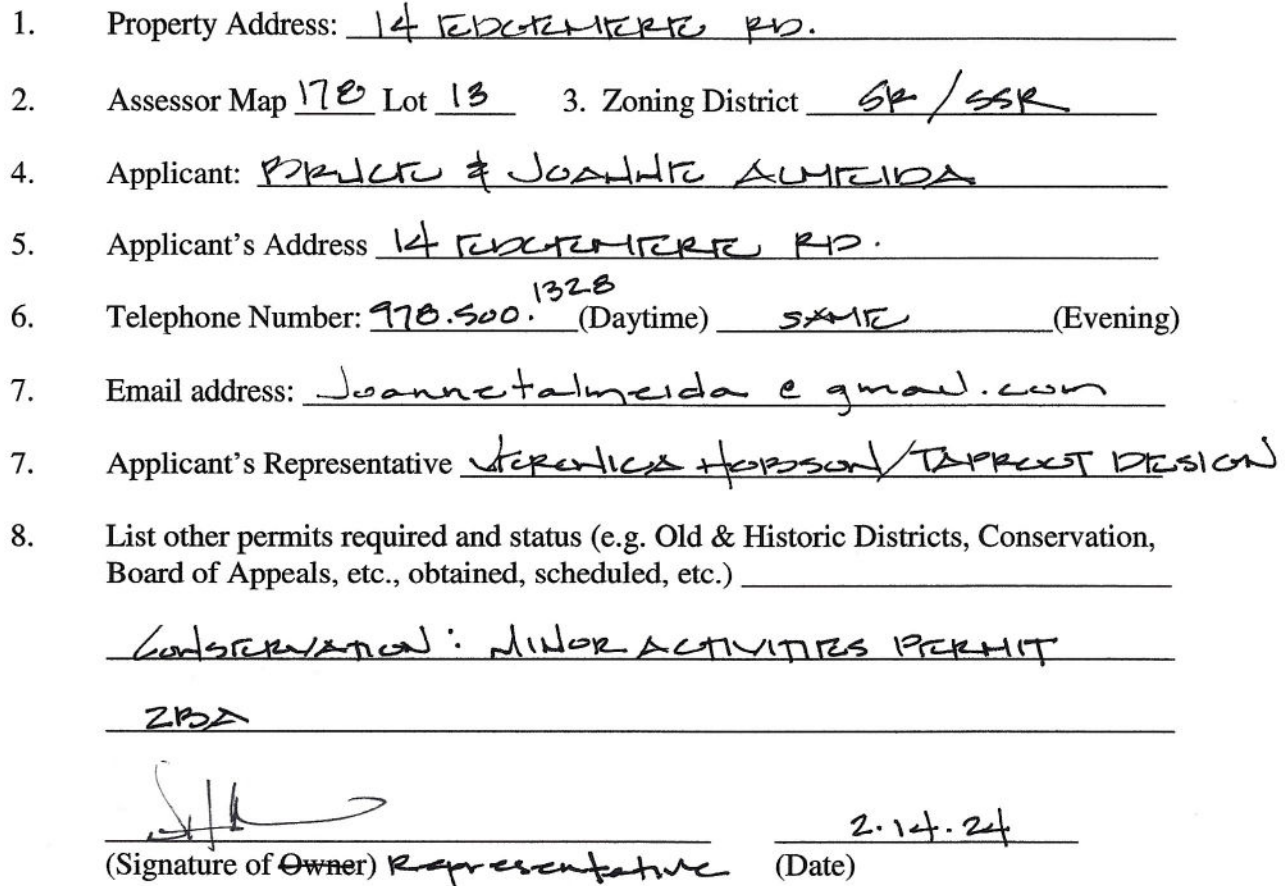 1. Property Address: 14 EDGEMERE RD.
2. Assessor Map 178 Lot 13 3. Zoning District SR/SSR
4. Applicant: BRUCE & JOANNE ALMEIDA
5. Applicant's Address 14 EDGEMERE RD.
6. Telephone Number: 978.500.1328 (Daytime) SAME (Evening)
7. Email address: Joannetalmeida @ gmail.com
7. Applicant's Representative VERONICA HOBSON/TAPROOT DESIGN
8. List other permits required and status (e.g. Old & Historic Districts, Conservation,
Board of Appeals, etc., obtained, scheduled, etc.)
CONSERVATION: MINOR ACTIVITIES PERMIT
ZBA
2.14.24
(Signature of Owner) Representative (Date)